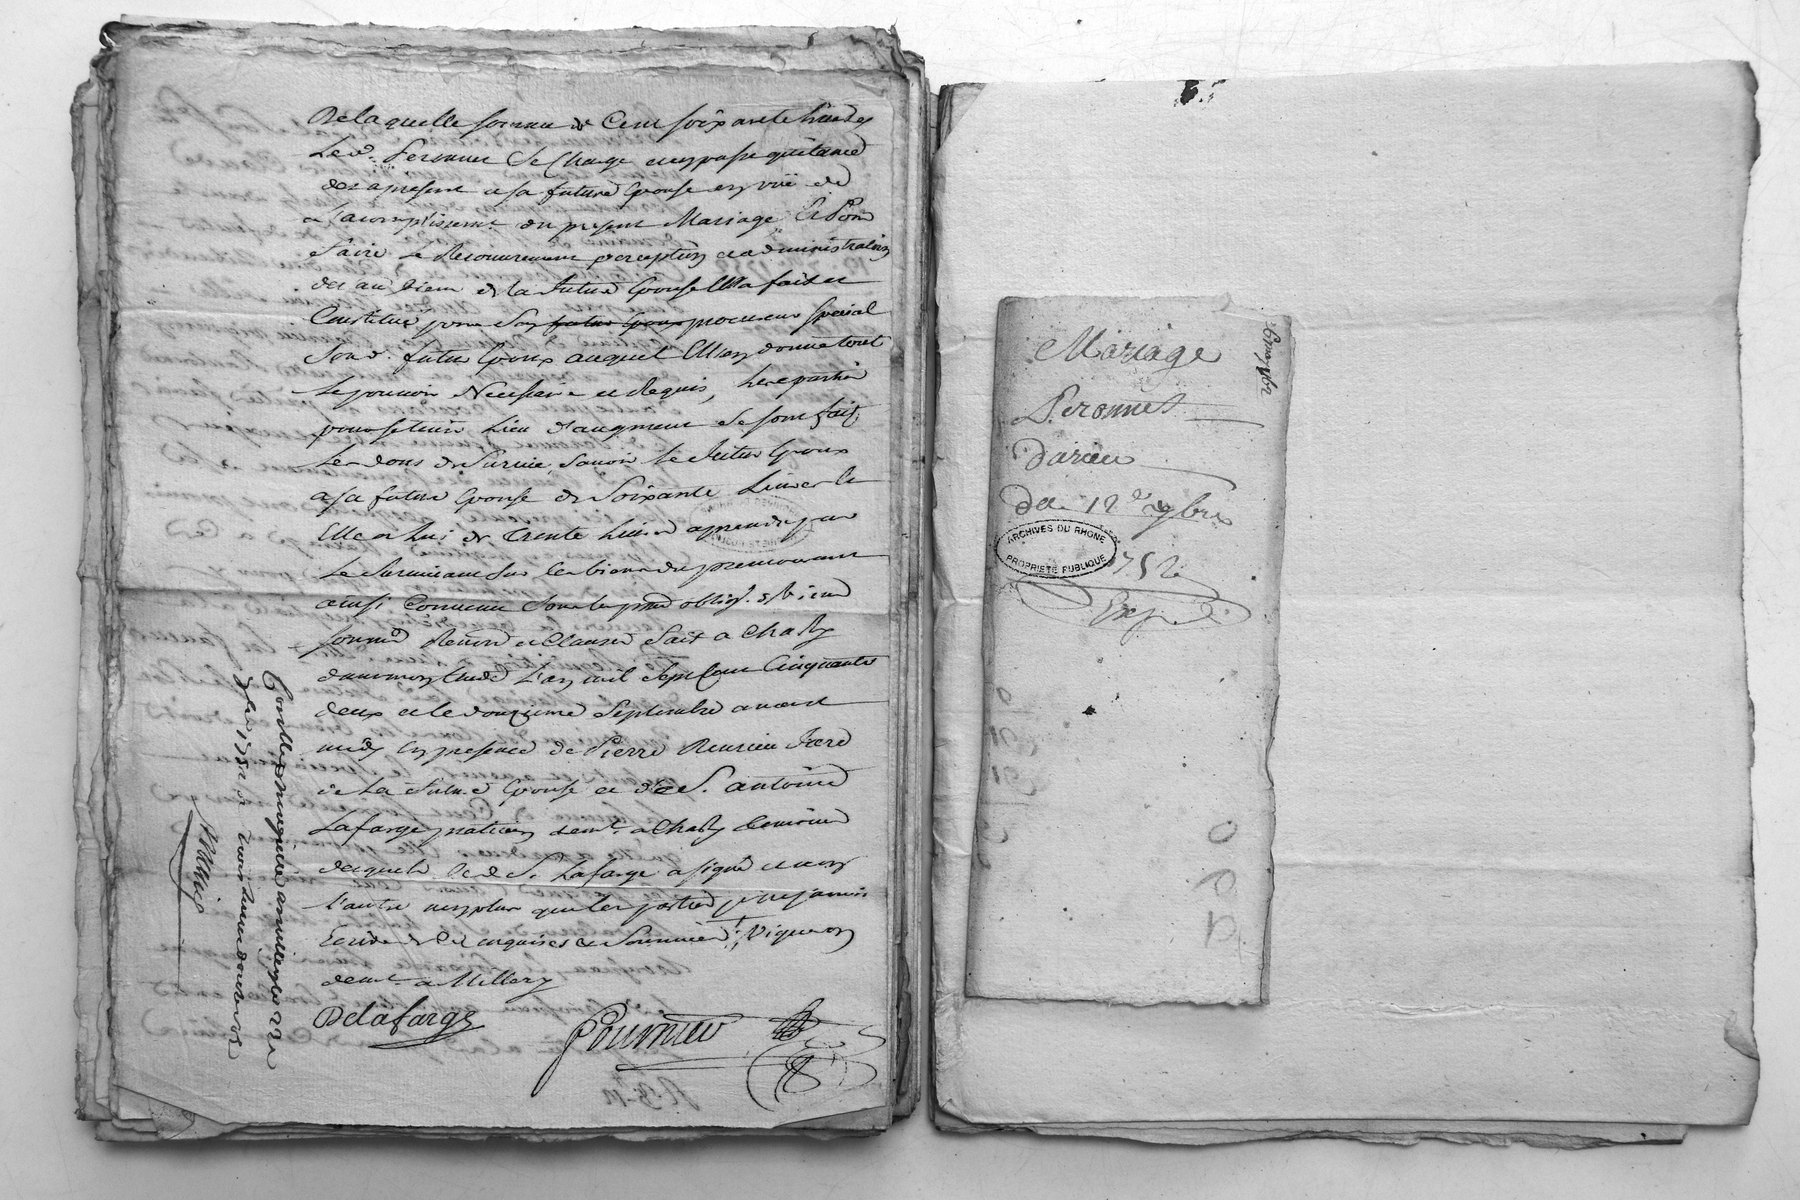 De laquelle somme de Cent soixante livres
Led. Peronnet se Charge en passe quittance
des apresent a sa future Epouse en vuë de
a lacomplissemt. du present Mariage Et Pour
faire Le Recouvrement perception et administration
des au biens de la future Epouse Elle a fait et
Constitué pour Son futur Epoux procureur special
Sond. futur Epoux auquel Elle en donne tout
le pouvoir Necessaire et Requis, Les parties
pour Leur tenir Lieu d'augment se sont fait
Les dons de Survie, Savoir Le futur Epoux
a sa future Epouse de Soixante Livres Et
Elle a Lui de trente Livres a prendre par
Le Survivant Sur Les biens du premourant
ainsi Convenu Sous Les prom. obligs. de biens
soumis. Renons. et Clauses fait a Charly
dans mon Etude L'an mil Sept Cent Cinquante
deux et le douzieme Septembre avant
midy En presence de Pierre frere
de La future Epouse et de S. antoine
Lafarge praticien demt. a Charly temoins
desquels Led. S. Lafarge a signé et non
L'autre non plus que les parties pour ne sçavoir
Ecrire de Ce enquises et Sommées Vigneron
demt. a Millery
Delafarge
Fournier
Controllé
1752
Mariage
Peronnet
Darieu
Du 12e 7bre
1752
Exp.
ARCHIVES DU RHONE
PROPRIETE PUBLIQUE